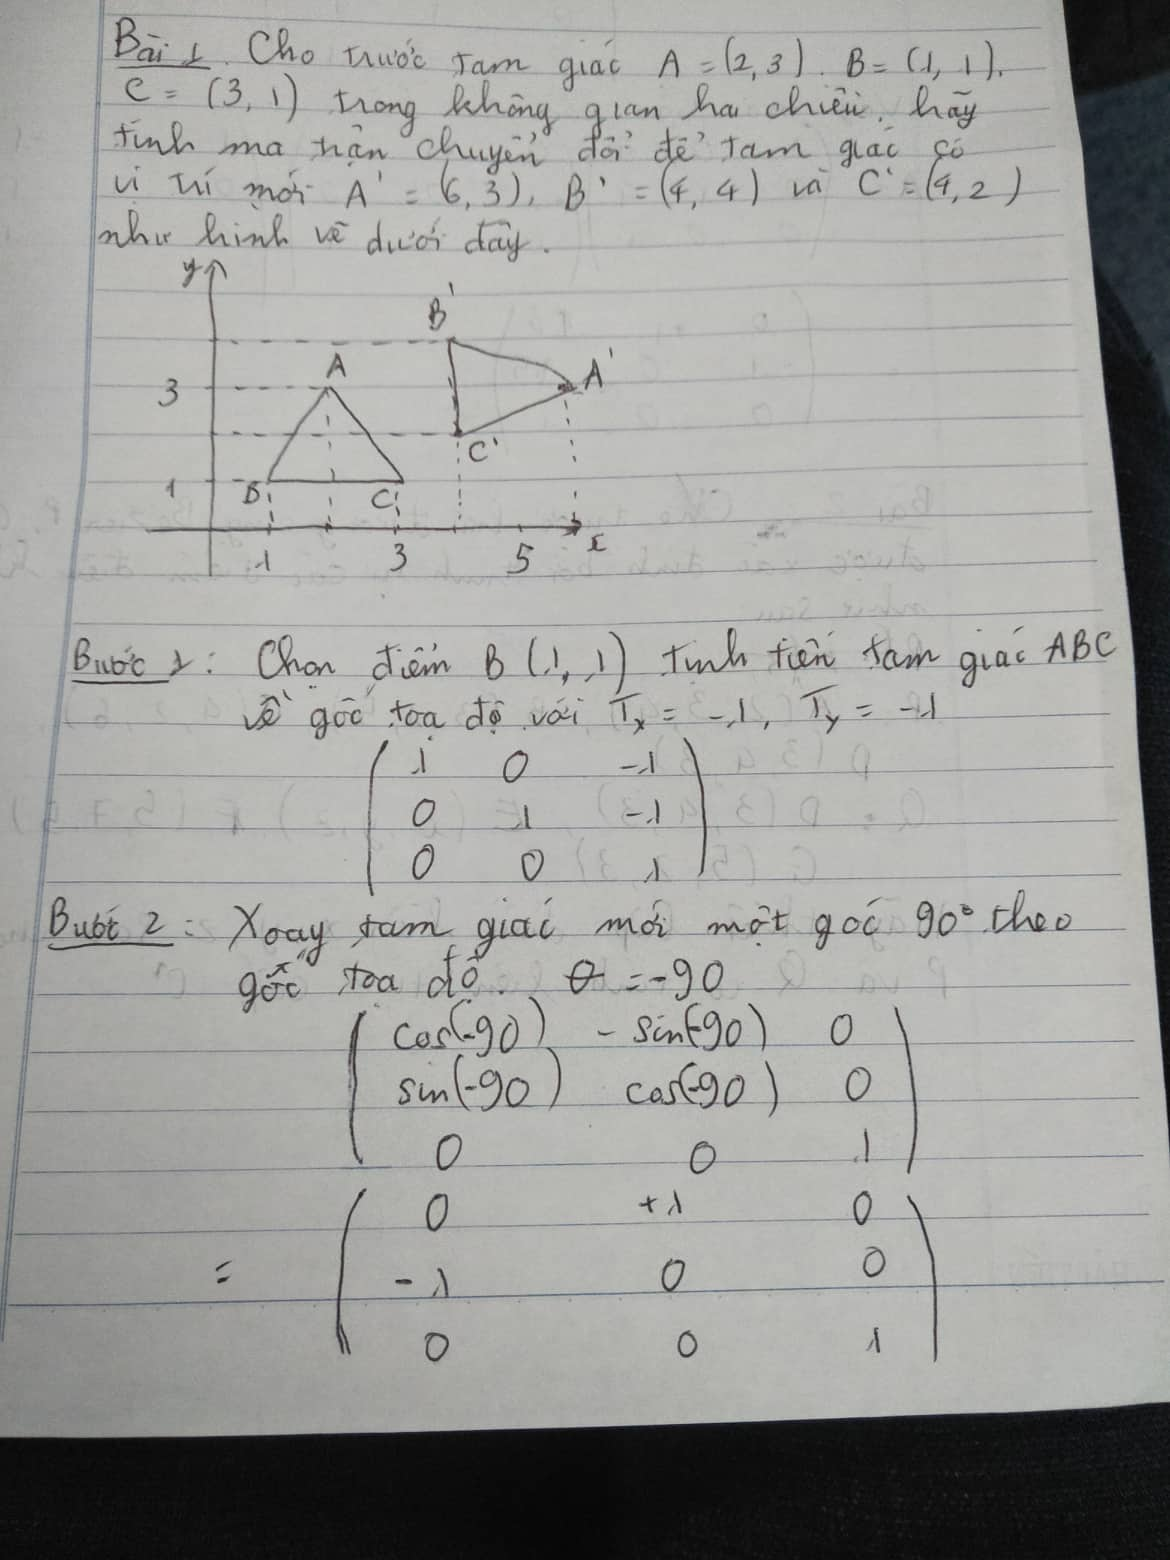 Bài 1. Cho trước tam giác A = (2, 3). B = (1, 1),
C = (3, 1) trong không gian hai chiều, hãy
tính ma trận chuyển đổi để tam giác có
vị trí mới A' = (6, 3), B' = (4, 4) và C' = (4, 2)
như hình vẽ dưới đây.
y
B'
A
A'
3
C'
1
B
C
x
1 3 5
Bước 1: Chọn điểm B (1, 1) tịnh tiến tam giác ABC
về gốc toạ độ với Tx = -1, Ty = -1
1 0 -1
0 1 -1
0 0 1
Bước 2: Xoay tam giác mới một góc 90° theo
gốc toạ độ. θ = -90
cos(-90) - sin(-90) 0
sin(-90) cos(-90) 0
0 0 1
0 +1 0
= -1 0 0
0 0 1